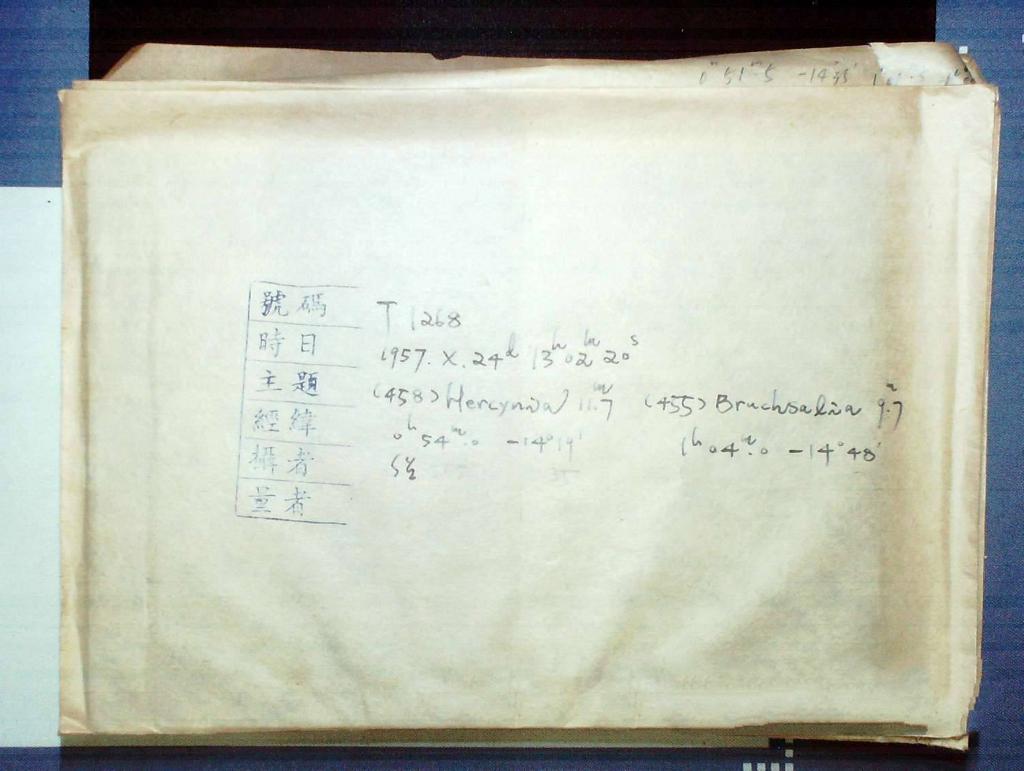 1ʰ 51ᵐ.5 -14°35'
號碼 T 1268
時日 1957. X. 24ᵈ 13ʰ 02ᵐ 20ˢ
主題 (458) Hercynia 11.ᵐ7 (455) Bruchsalia 9.ᵐ7
經緯 0ʰ 54ᵐ.0 -14°19' 1ʰ 04ᵐ.0 -14°48'
攝者
量者